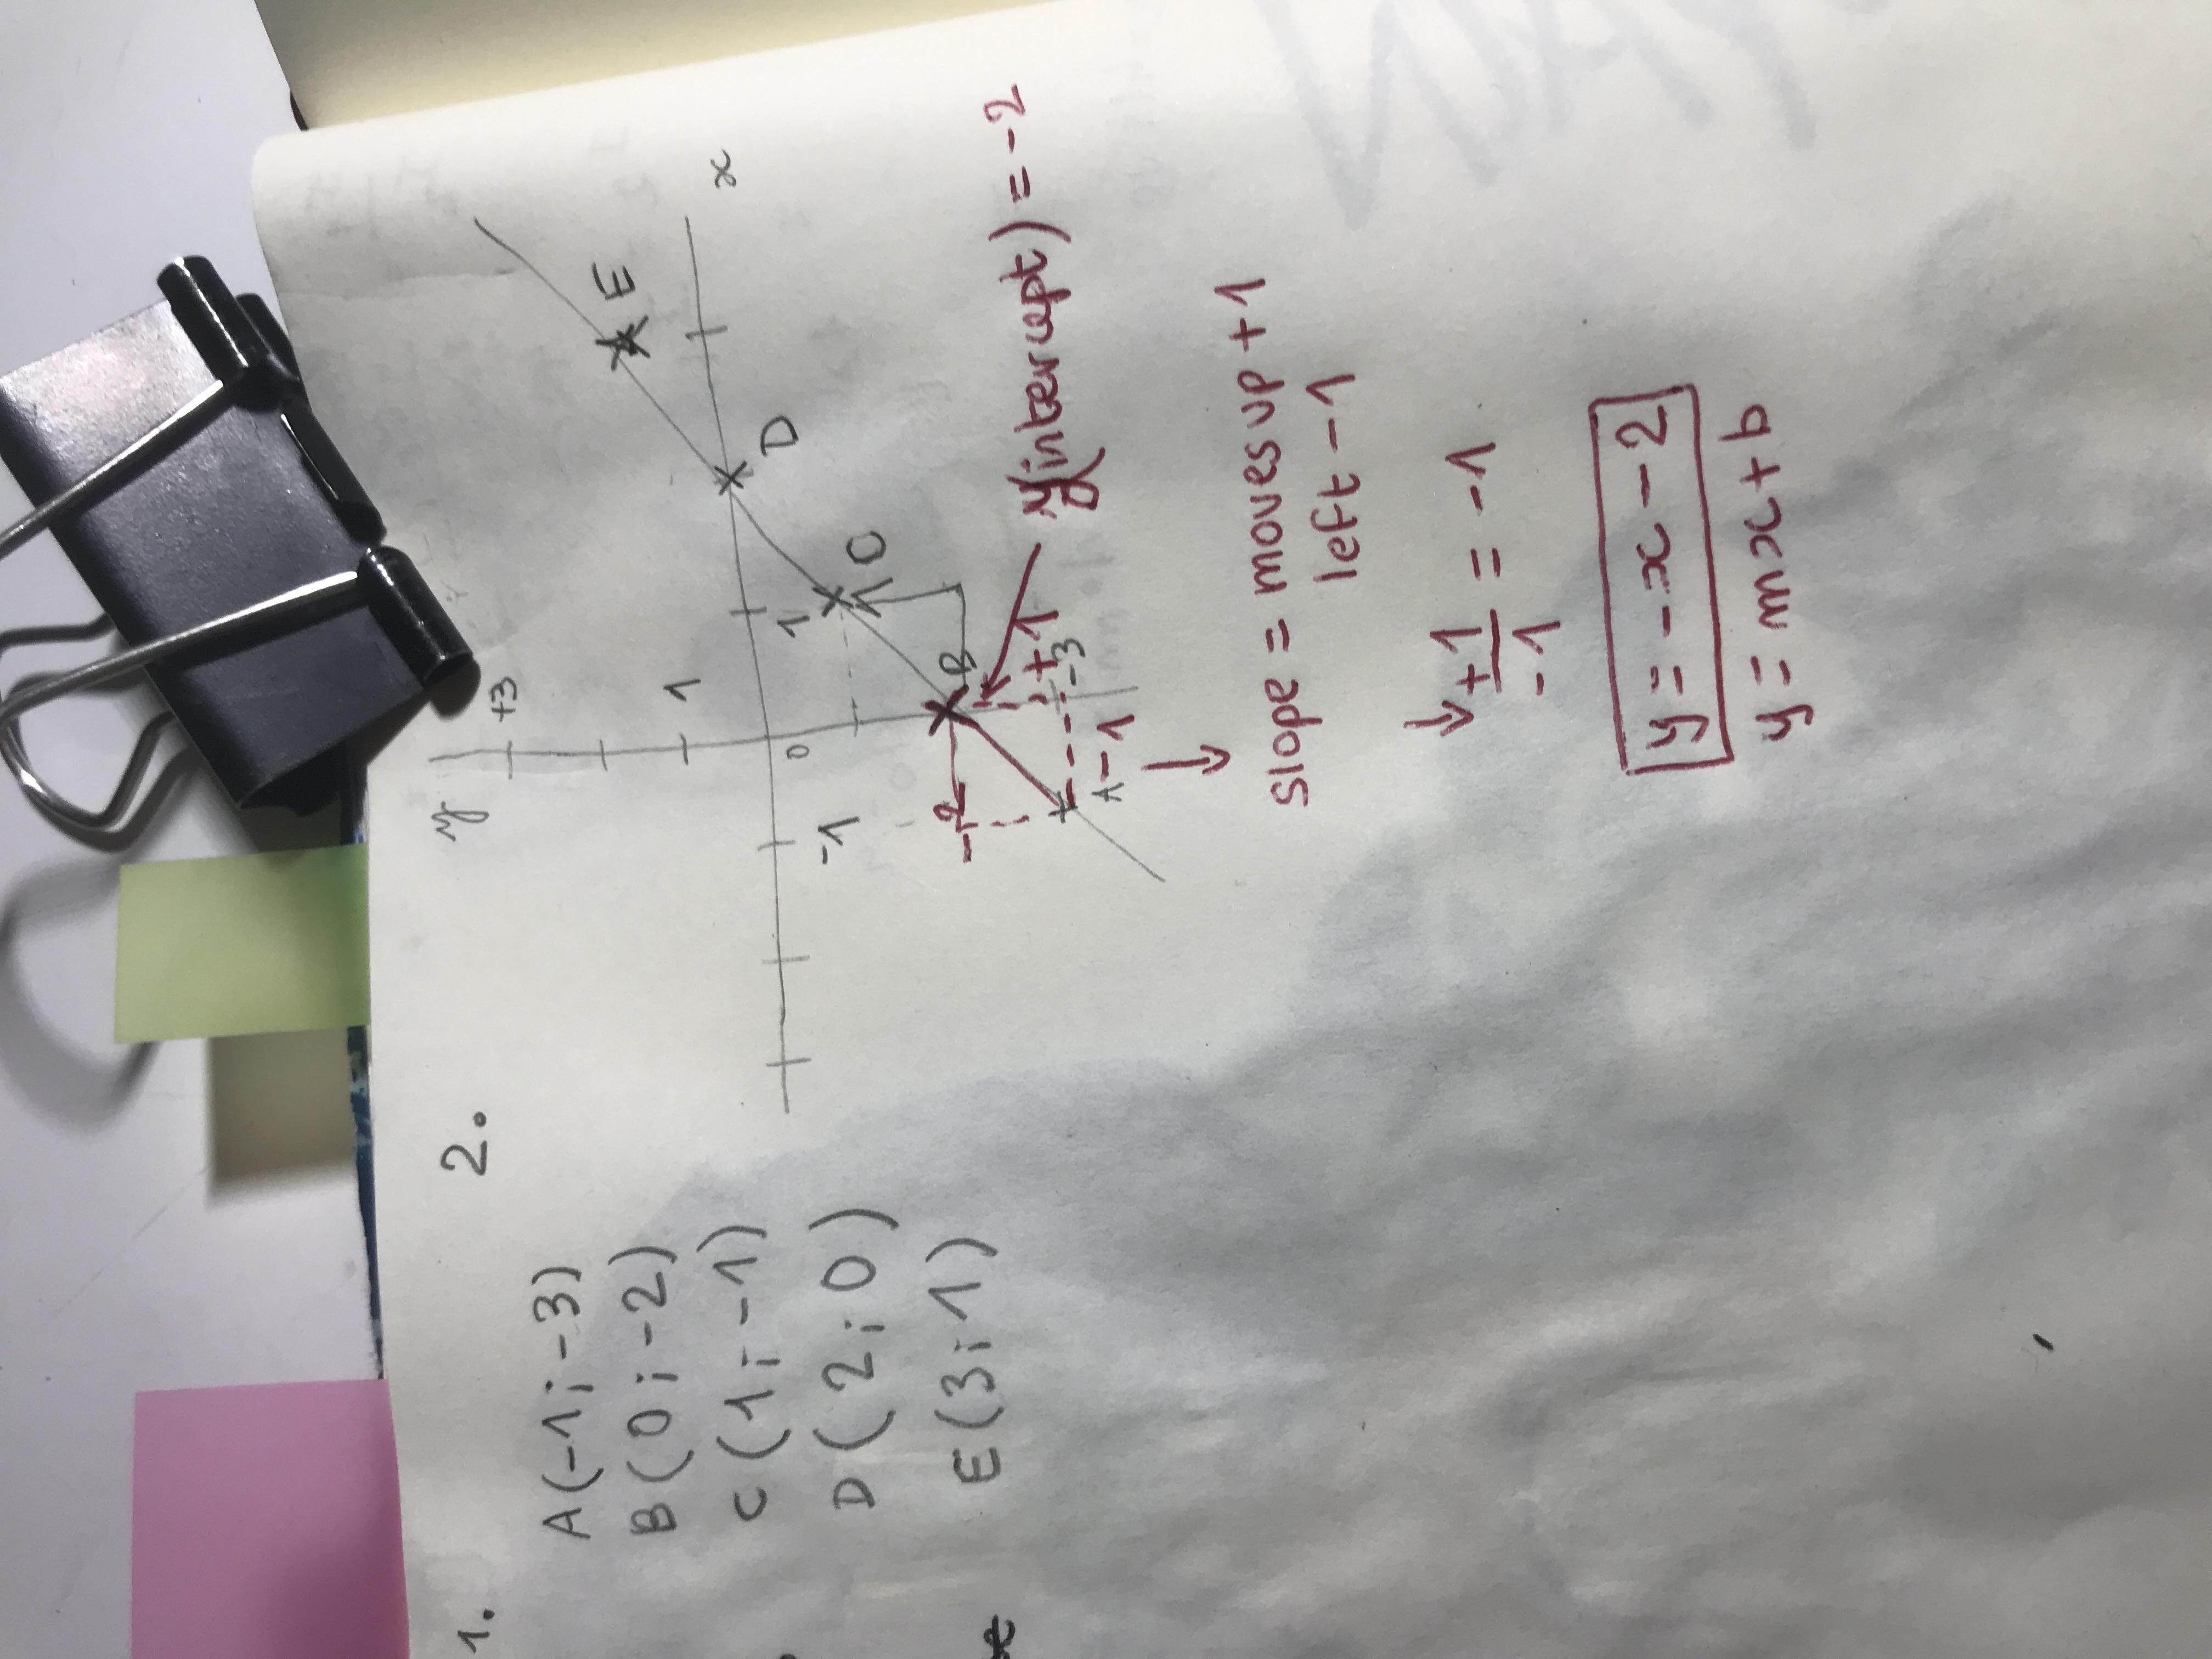 1.
A(-1;-3)
B(0;-2)
C(1;-1)
D(2;0)
E(3;1)
2.
y
+3
1
E
x
D
-1
0
1
C
-2
B
+1
-3
A
-1
y(intercept) = -2
slope = moves up +1
left -1
↳ +1/-1 = -1
y = -x - 2
y = mx + b